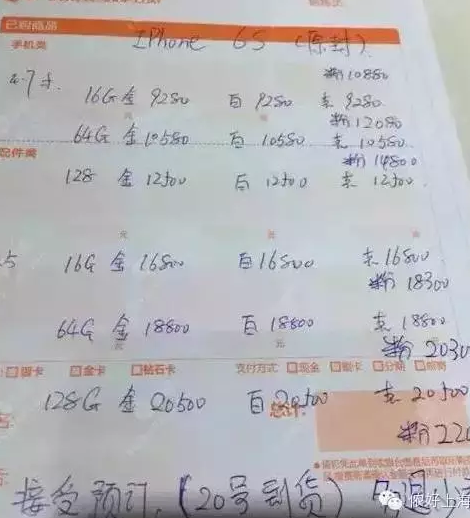 已购商品
手机类 IPhone 6S (原封)
4.7寸 粉10880
16G 金 9280 白 9280 走 9280
元 元 粉12080
64G 金 10580 白 10580 走 10580
配件类 粉14800
128 金 12500 白 12500 走 12500
元 元 元
16G 金 16800 白16800 走16800
粉 18300
64G 金 18800 白 18800 走 18800
元 元 粉 2030
银卡 金卡 钻石卡 支付方式 现金 刷卡 分期
128G 金 20500 白 20500 走 20500
总计: 粉 220
接受预订 (20号到货)
侬好上海